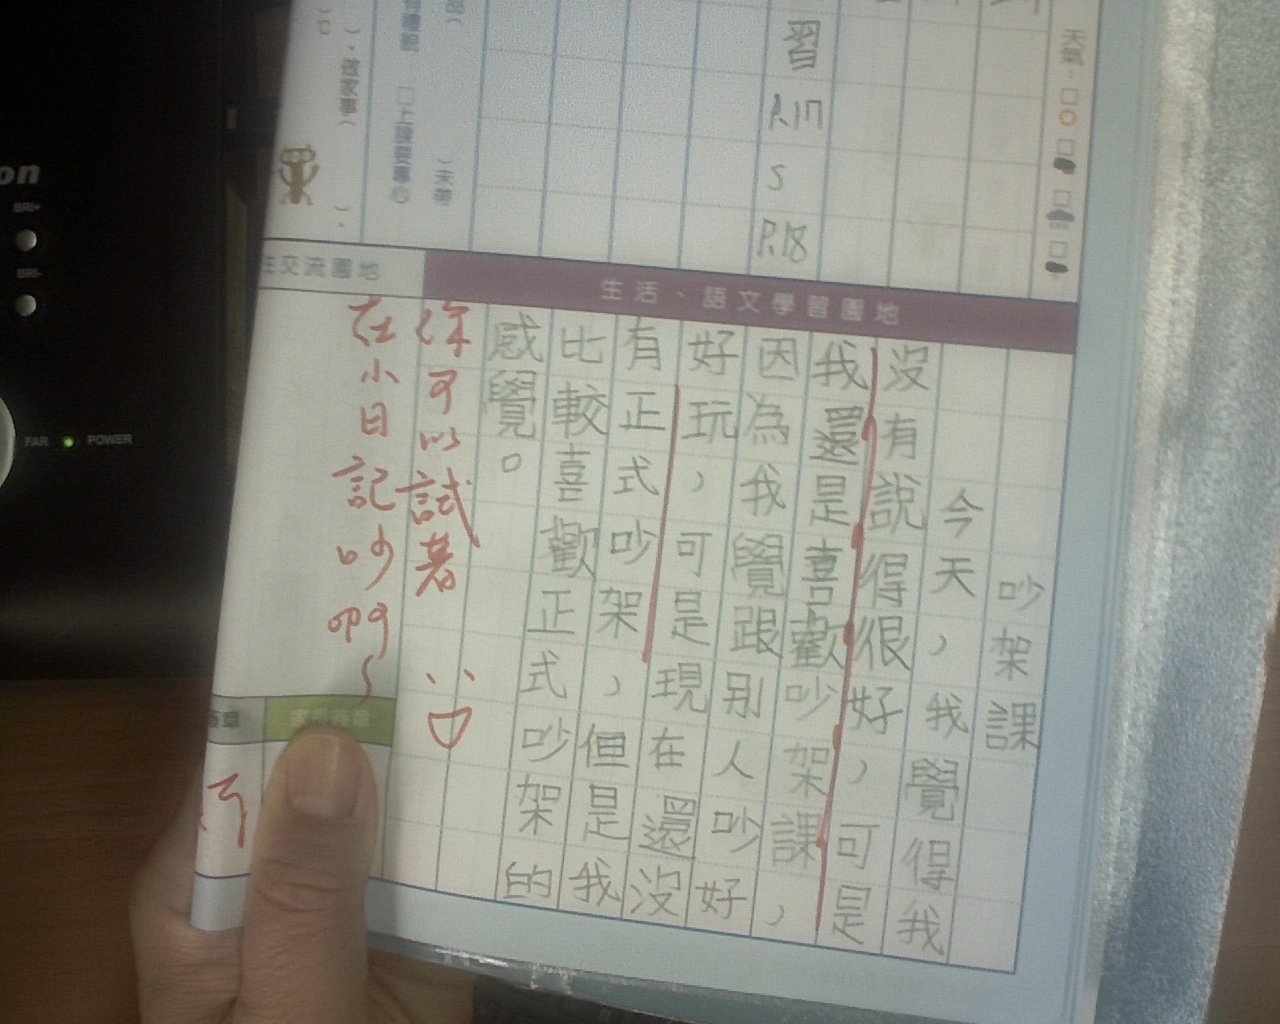 天氣：
習
P.17
S
P.18
□上課要專心
（未帶
）、做家事（
）。
生活、語文學習園地
生交流園地
吵架課
今天，我覺得我
沒有說得很好，可是
我還是喜歡吵架課，
因為我覺跟別人吵好
好玩，可是現在還沒
有正式吵架，但是我
比較喜歡正式吵架的
感覺。
你可以試著
在小日記吵啊～
on
BRI+
BRI-
FAR
POWER